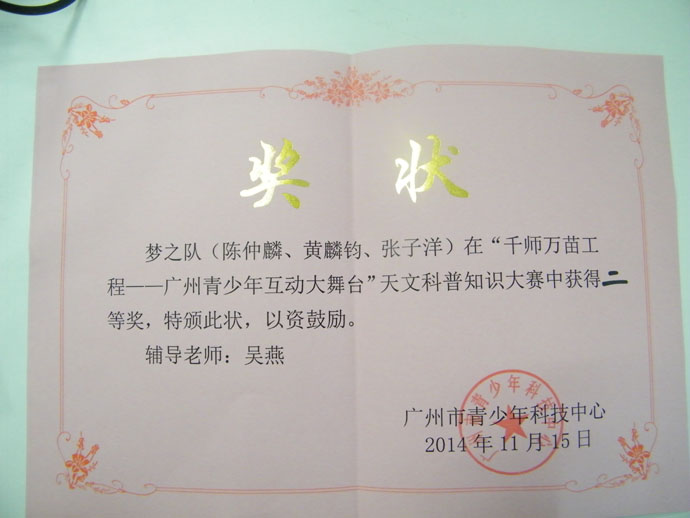 奖 状
梦之队（陈仲麟、黄麟钧、张子洋）在“千师万苗工
程——广州青少年互动大舞台”天文科普知识大赛中获得二
等奖，特颁此状，以资鼓励。
辅导老师：吴燕
广州市青少年科技中心
2014年11月15日
广州市青少年科技中心